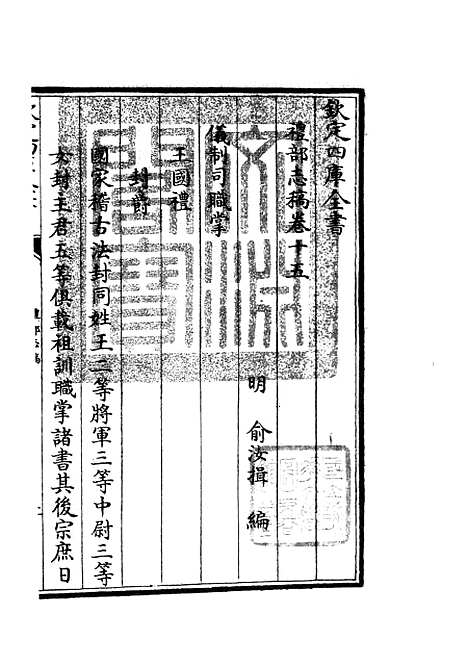 欽定四庫全書
禮部志稿卷十五
明 俞汝揖 編
儀制司職掌
王國禮
封爵
國家稽古法封同姓王二等將軍三等中尉三等
女封主君五等俱載祖訓職掌諸書其後宗庶日